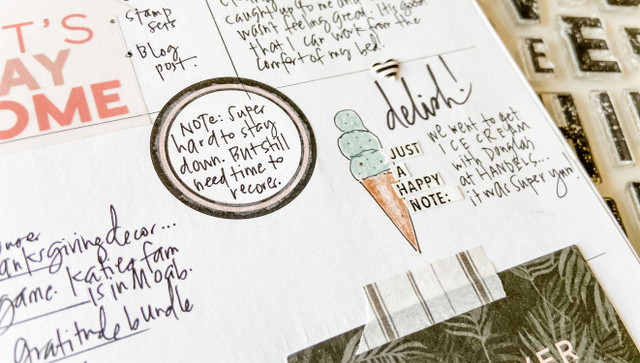 IT'S
AY
OME
stamp
sets
• Blog
post.
caught up to me and
wasn't feeling great. It's good
that I can work from the
comfort of my bed.
NOTE: Super
hard to stay
down. But still
need time to
recover.
delish!
JUST
A
HAPPY
NOTE:
we went to get
ICE CREAM
with Douglas
at HANDELS...
it was super yum!
anksgiving decor...
game. Katie & fam
is in Moab.
gratitude bundle
VER